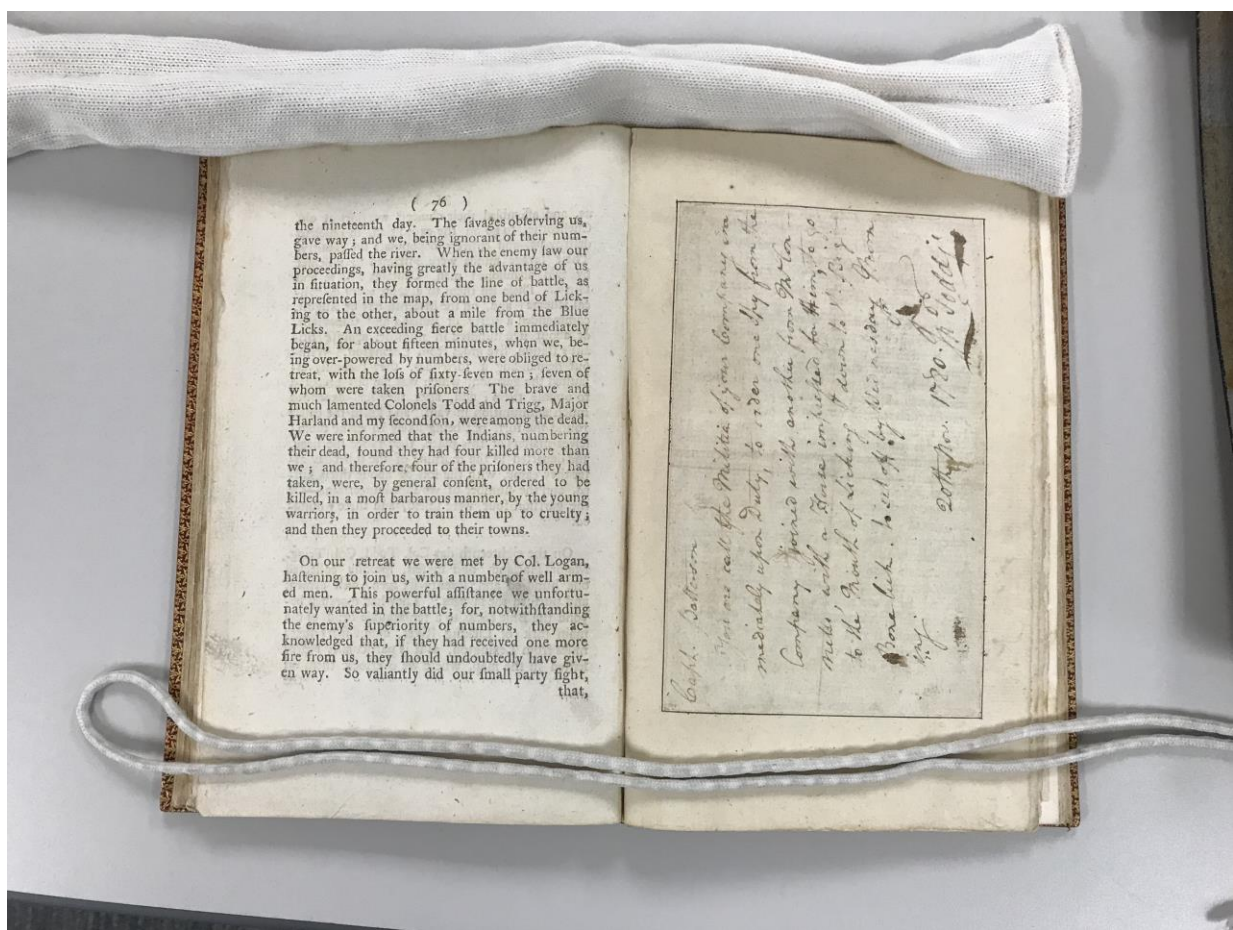 ( 76 )
the nineteenth day. The ſavages obſerving us,
gave way ; and we, being ignorant of their num-
bers, paſſed the river. When the enemy ſaw our
proceedings, having greatly the advantage of us
in ſituation, they formed the line of battle, as
repreſented in the map, from one bend of Lick-
ing to the other, about a mile from the Blue
Licks. An exceeding fierce battle immediately
began, for about fifteen minutes, when we, be-
ing over-powered by numbers, were obliged to re-
treat, with the loſs of ſixty-ſeven men ; ſeven of
whom were taken priſoners The brave and
much lamented Colonels Todd and Trigg, Major
Harland and my ſecond ſon, were among the dead.
We were informed that the Indians, numbering
their dead, found they had four killed more than
we ; and therefore, four of the priſoners they had
taken, were, by general conſent, ordered to be
killed, in a moſt barbarous manner, by the young
warriors, in order to train them up to cruelty ;
and then they proceeded to their towns.
On our retreat we were met by Col. Logan,
haſtening to join us, with a number of well arm-
ed men. This powerful aſſiſtance we unfortu-
nately wanted in the battle ; for, notwithſtanding
the enemy's ſuperiority of numbers, they ac-
knowledged that, if they had received one more
fire from us, they ſhould undoubtedly have giv-
en way. So valiantly did our ſmall party fight,
that,
Capt. Patterson
call the Militia of your Company im
mediately upon Duty, to order one Spy from the
Company joined with another from
with a Horse impressed for Him, to go
to the Mouth of Licking & down to the Big
Bone lick. to set off by Wednesday
20th Nov. 1780. Todd